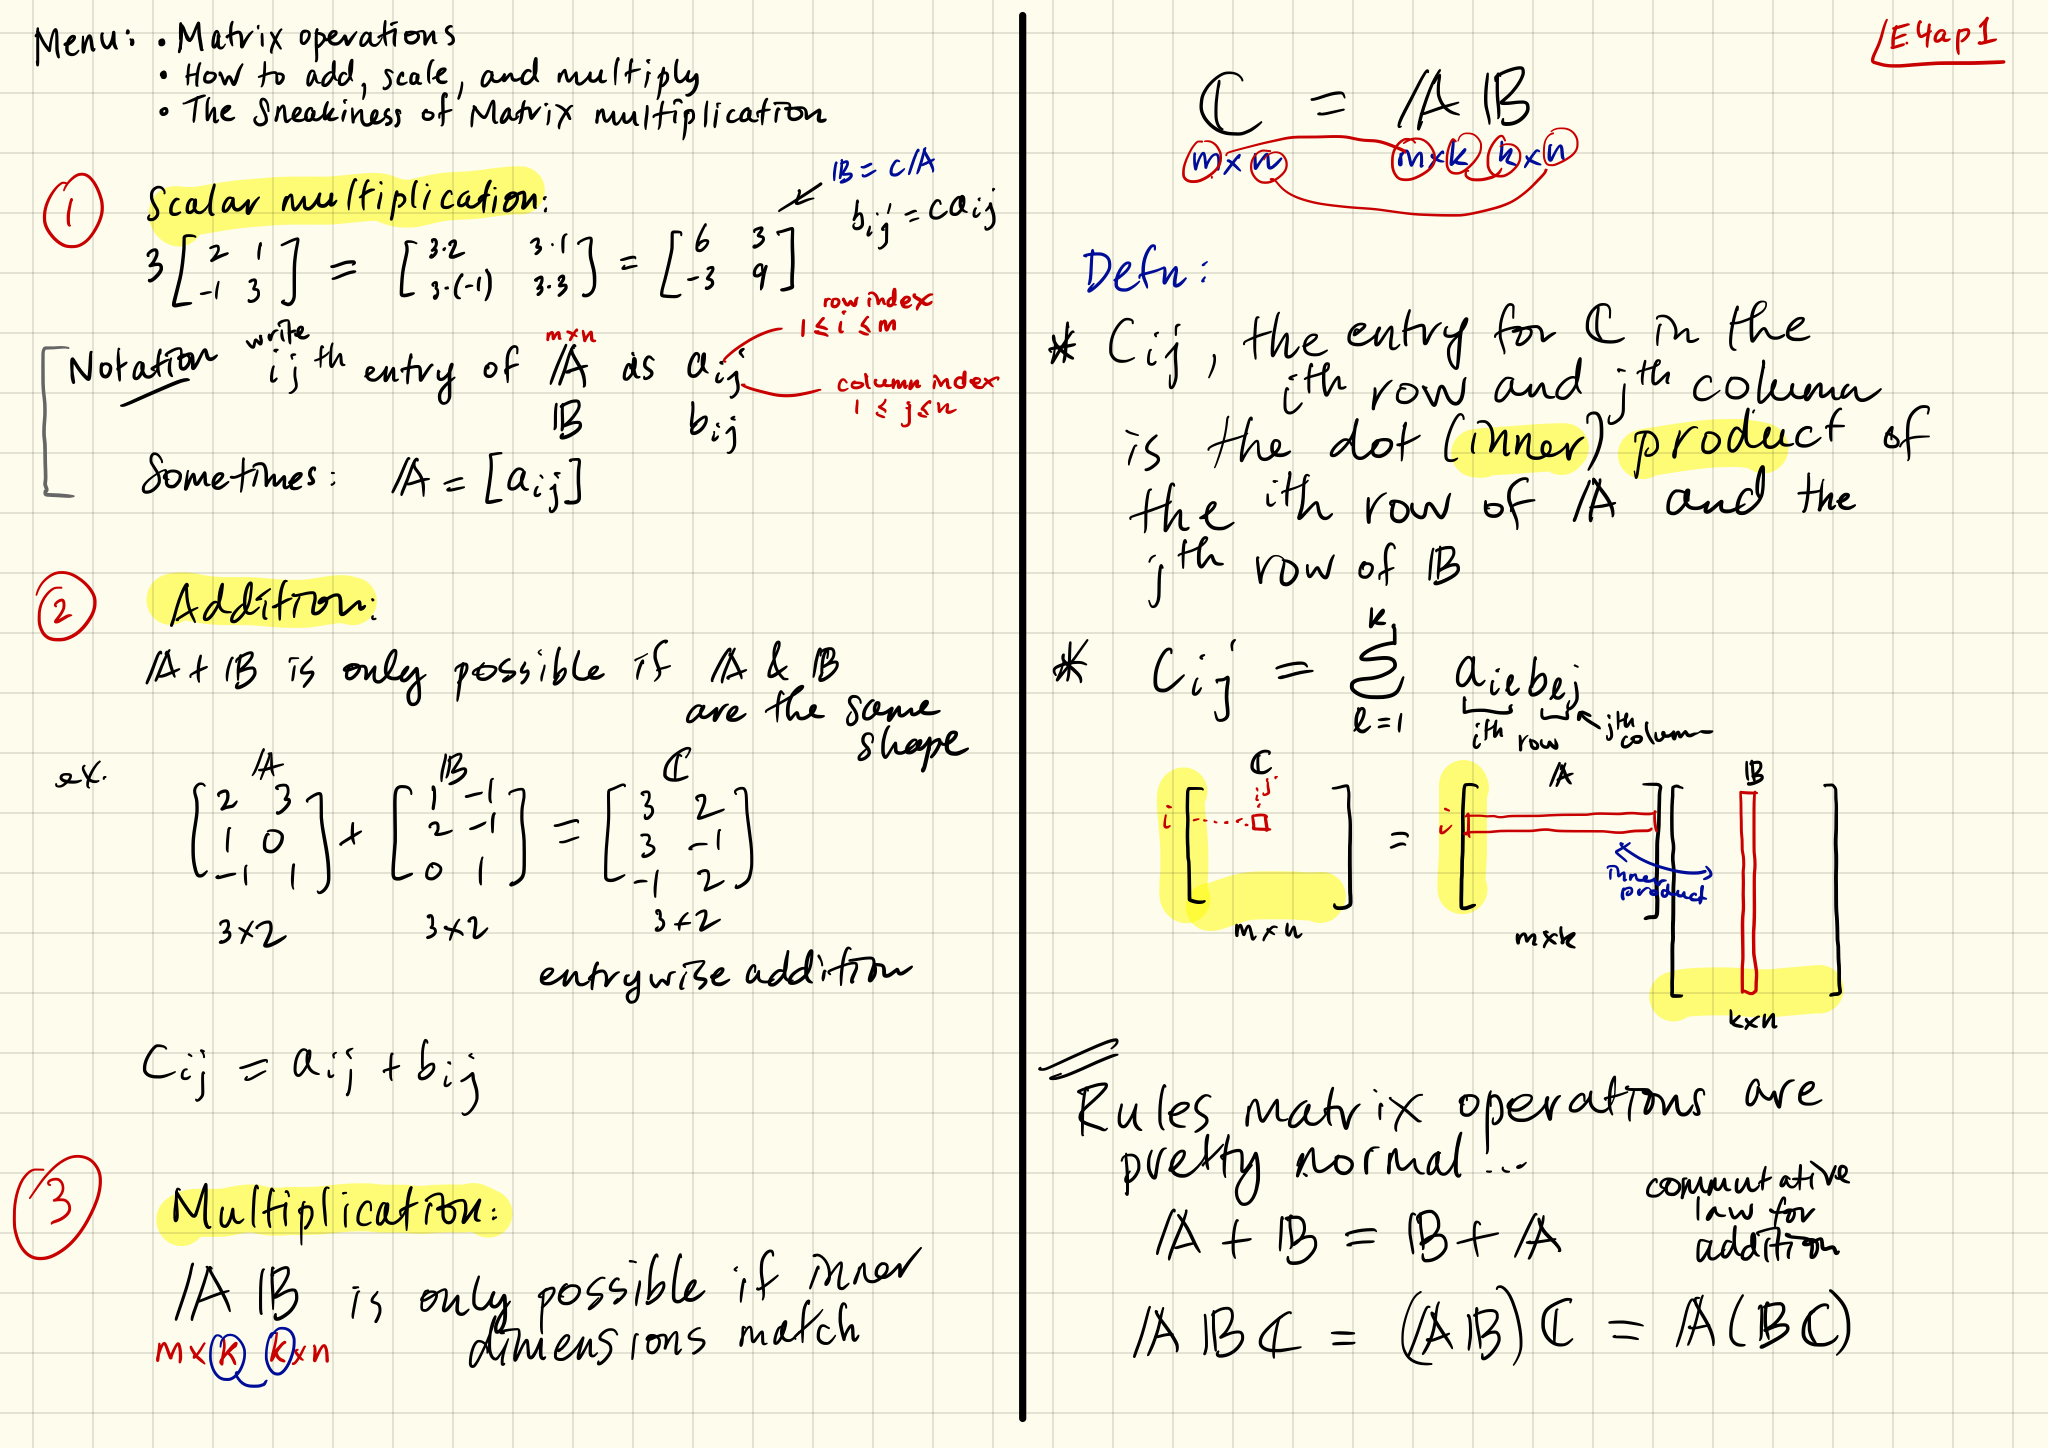 Menu: • Matrix operations
• How to add, scale, and multiply
• The Sneakiness of Matrix multiplication
1 Scalar multiplication:
𝔹 = c𝔸
b_ij = c a_ij
3 [ 2 1 ; -1 3 ] = [ 3·2 3·1 ; 3·(-1) 3·3 ] = [ 6 3 ; -3 9 ]
row index
1 ≤ i ≤ m
Notation write ij th entry of 𝔸 as a_ij
m×n
column index
1 ≤ j ≤ n
𝔹 b_ij
Sometimes: 𝔸 = [a_ij]
2 Addition:
𝔸 + 𝔹 is only possible if 𝔸 & 𝔹
are the same
shape
ex.
𝔸 𝔹 ℂ
[ 2 3 ; 1 0 ; -1 1 ] + [ 1 -1 ; 2 -1 ; 0 1 ] = [ 3 2 ; 3 -1 ; -1 2 ]
3×2 3×2 3×2
entrywise addition
c_ij = a_ij + b_ij
3 Multiplication:
𝔸 𝔹 is only possible if inner
dimensions match
m×k k×n
E4ap1
ℂ = 𝔸 𝔹
m×n m×k k×n
Defn:
* C_ij, the entry for ℂ in the
ith row and jth column
is the dot (inner) product of
the ith row of 𝔸 and the
jth row of 𝔹
* C_ij = Σ a_iℓ b_ℓj
k
ℓ=1
ith row jth column
ℂ 𝔸 𝔹
i j = i
inner
product
m×n m×k
k×n
Rules matrix operations are
pretty normal!...
𝔸 + 𝔹 = 𝔹 + 𝔸
commutative
law for
addition
𝔸 𝔹 ℂ = (𝔸 𝔹) ℂ = 𝔸 (𝔹 ℂ)